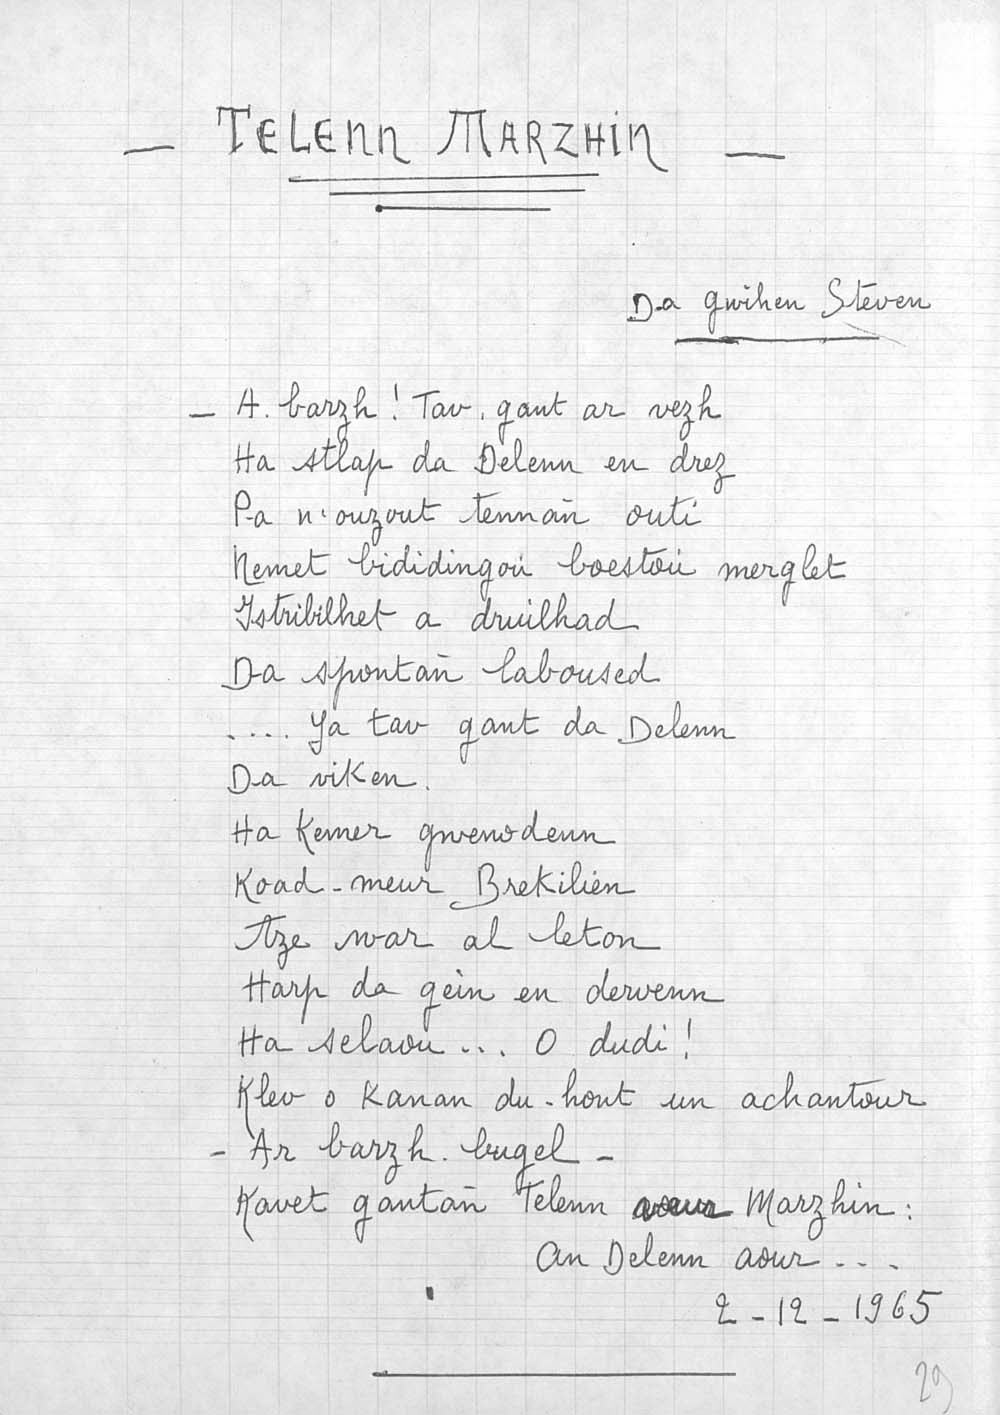 — TELENN MARZHIN —
Da gwihen Stéven
— A. barzh ! Tav, gant ar vezh
Ha stlap da Delenn en drez
Pa n'ouzout tennañ outi
Nemet bididingoù boestoù merglet
Istribilhet a druilhad
Da spontañ laboused
.... Ya tav gant da Delenn
Da viken.
Ha kemer gwenodenn
Koad-meur Brekilien
Aze war al leton
Harp da gein en dervenn
Ha selaou ... O dudi !
Klev o kanan du-hont un achantour
- Ar barzh. bugel -
Kavet gantañ Telenn Marzhin :
An Delenn aour ...
2-12-1965
29